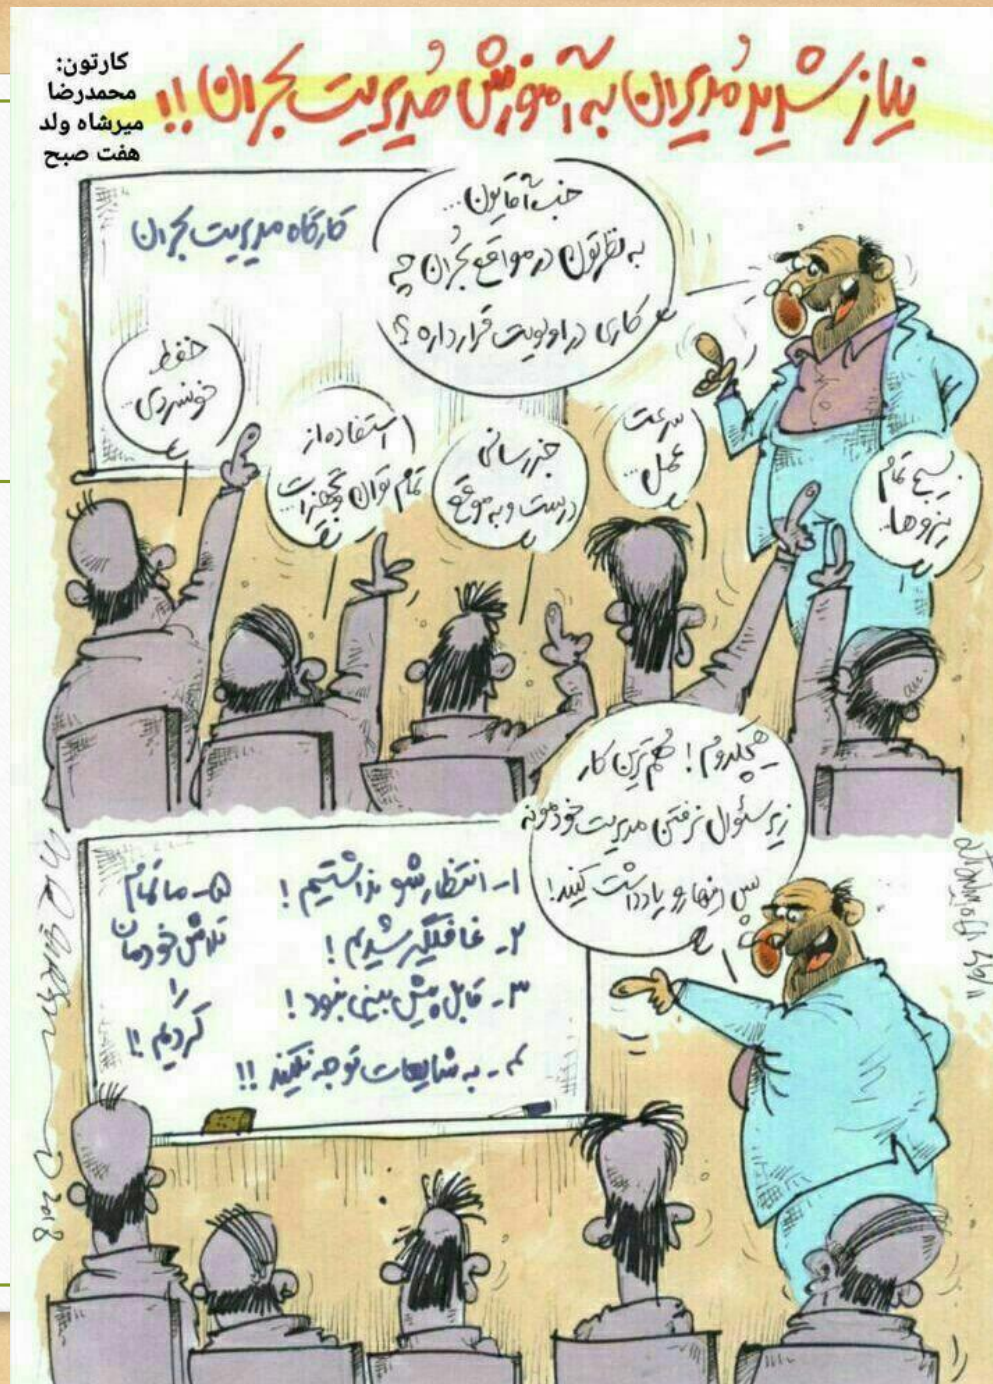 کارتون:
محمدرضا
میرشاه ولد
هفت صبح
نیاز شدید مُدیران به آموزش مُدیریت بحران!!
کارگاه مدیریت بحران
خب آقایون...
به نظرتون در مواقع بحران چه
کاری در اولویت قرار داره؟
حفظ
خونسردی...
استفاده از
تمام توان و تجهیزات...
خبررسانی
درست و به موقع
سرعت
عمل...
بسیج تمام
نیروها...
هیچکدوم! مُهم ترین کار
زیر سئوال نرفتن مدیریت خودمونه
پس اینهارو یادداشت کنید!
۱- انتظارشو نداشتیم!
۲- غافلگیر شدیم!
۳- قابل پیش بینی نبود!
۴- به شایعات توجه نکنید!!
۵- ما تمام
تلاش خودمان
را
کردیم!!
2018